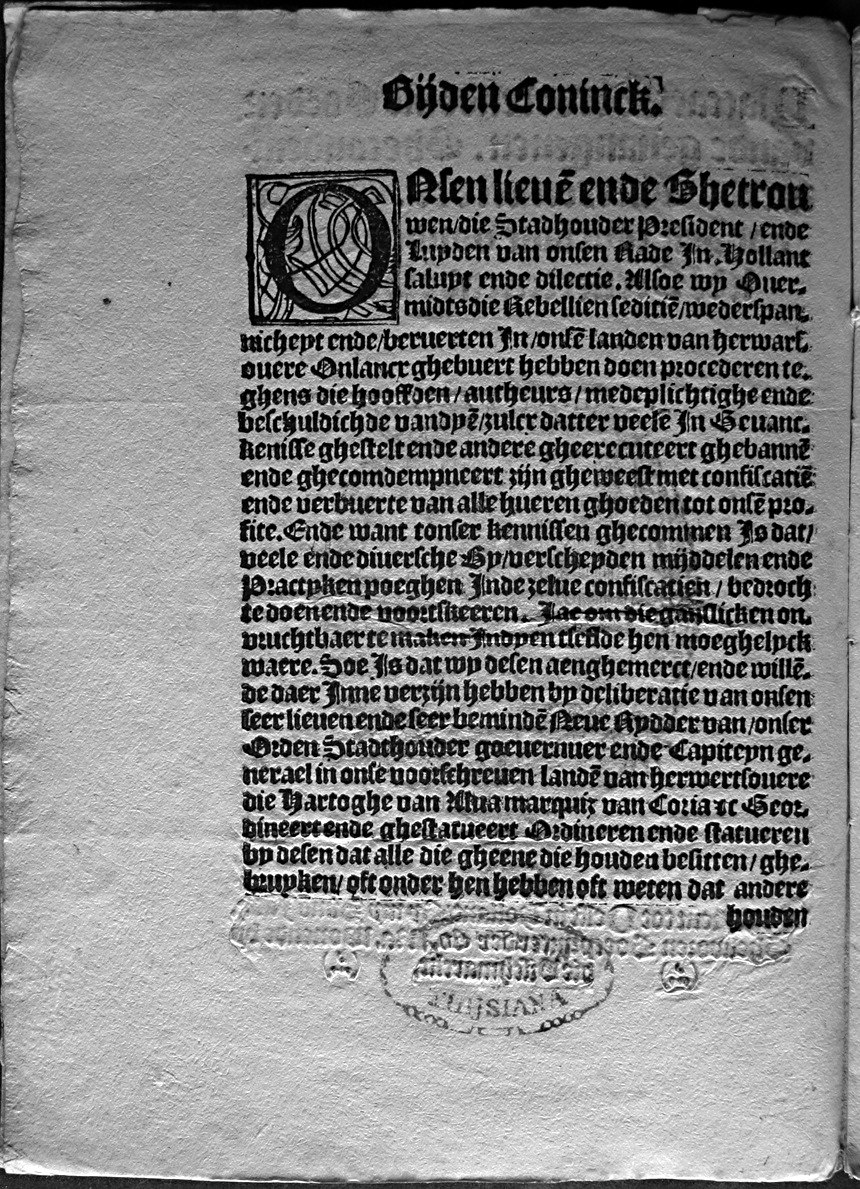 Bijden Coninck.
ONsen lieuē ende Ghetrou
wen/die Stadhouder President / ende
Luyden van onsen Rade In. Hollant
saluyt ende dilectie. Alsoe wy Ouer-
midts die Rebellien seditiē/wederspan-
nicheyt ende/beruerten In/onsē landen van herwars
ouere Onlancx ghebuert hebben doen procederen te-
ghens die hooffden / autheurs / medeplichtighe ende
beschuldichde vandyē/zulcx datter veele In Geuanc-
kenisse ghestelt ende andere gheexecuteert ghebannē
ende ghecomdempneert zijn gheweest met confiscatiē
ende verbuerte van alle hueren ghoeden tot onsē pro-
fite. Ende want tonser kennissen ghecommen Is dat/
veele ende diuersche By/verscheyden mijddelen ende
Practyken poeghen Inde zelue confiscatien / bedroch
te doen ende voortskeeren. Jae om die ganslicken on-
vruchtbaer te maken Indyen tselfde hen moeghelyck
waere. Soe Is dat wy desen aenghemerct/ende willē-
de daer Inne verzijn hebben by deliberatie van onsen
seer lieuen ende seer bemindē Neue Rydder van/onser
Orden Stadthouder goeuernuer ende Capiteyn ge-
nerael in onse voorschreuen landē van herwertsouere
die Hartoghe van Alua marquiz van Coria ꝛc Geor-
dineert ende ghestatueert Ordineren ende statueren
by desen dat alle die gheene die houden besitten / ghe-
bruyken/ oft onder hen hebben oft weten dat andere
houden
FLUSIANA